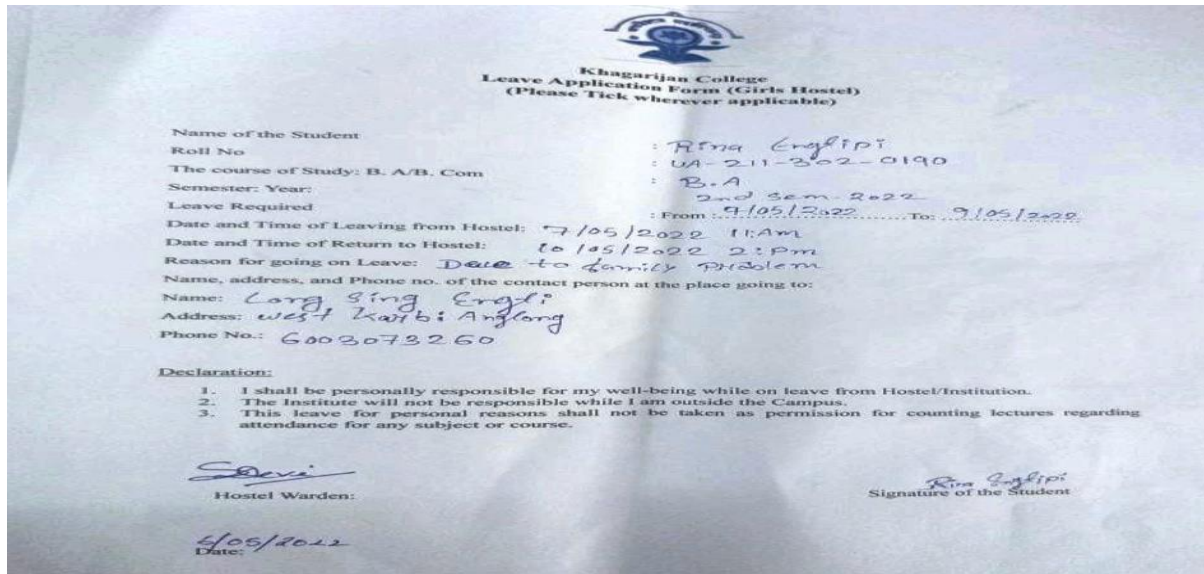 Khagarijan College
Leave Application Form (Girls Hostel)
(Please Tick wherever applicable)
Name of the Student : Rina Englipi
Roll No : UA-211-302-0190
The course of Study: B. A/B. Com : B.A
Semester: Year: 2nd sem-2022
Leave Required : From : 9/05/2022 To: 9/05/2022
Date and Time of Leaving from Hostel: 7/05/2022 11:Am
Date and Time of Return to Hostel: 10/05/2022 2:pm
Reason for going on Leave: to family problem
Name, address, and Phone no. of the contact person at the place going to:
Name: Long Sing
Address: West Karbi Anglong
Phone No.: 6003073260
Declaration:
1. I shall be personally responsible for my well-being while on leave from Hostel/Institution.
2. The Institute will not be responsible while I am outside the Campus.
3. This leave for personal reasons shall not be taken as permission for counting lectures regarding
attendance for any subject or course.
Rina Englipi
Hostel Warden: Signature of the Student
/05/2022
Date: